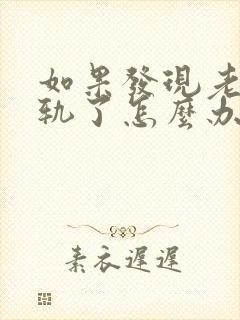 如果發現老
軌了怎麼办
素衣遲遲